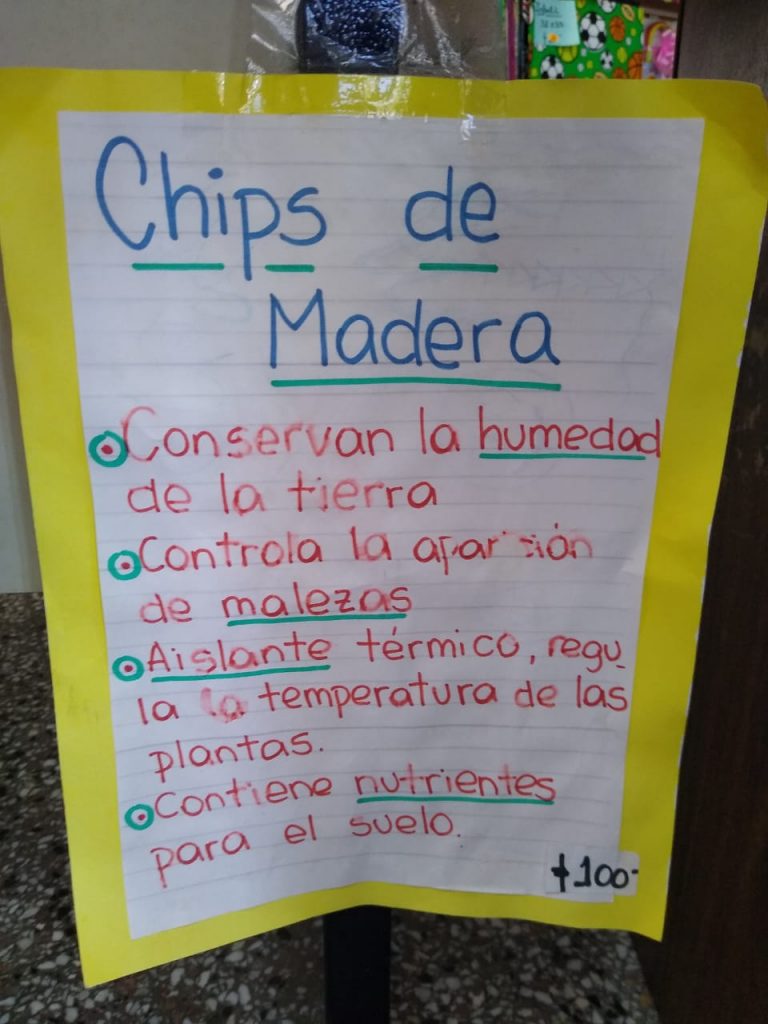 Chips de
Madera
Conservan la humedad
de la tierra
Controla la aparición
de malezas
Aislante térmico, regu_
la la temperatura de las
plantas.
Contiene nutrientes
para el suelo.
$100-